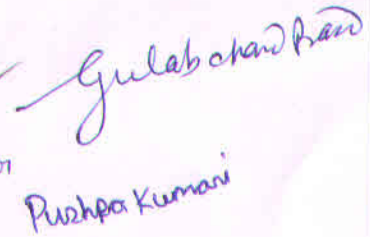 Gulab chand Prasad
Pushpa Kumari